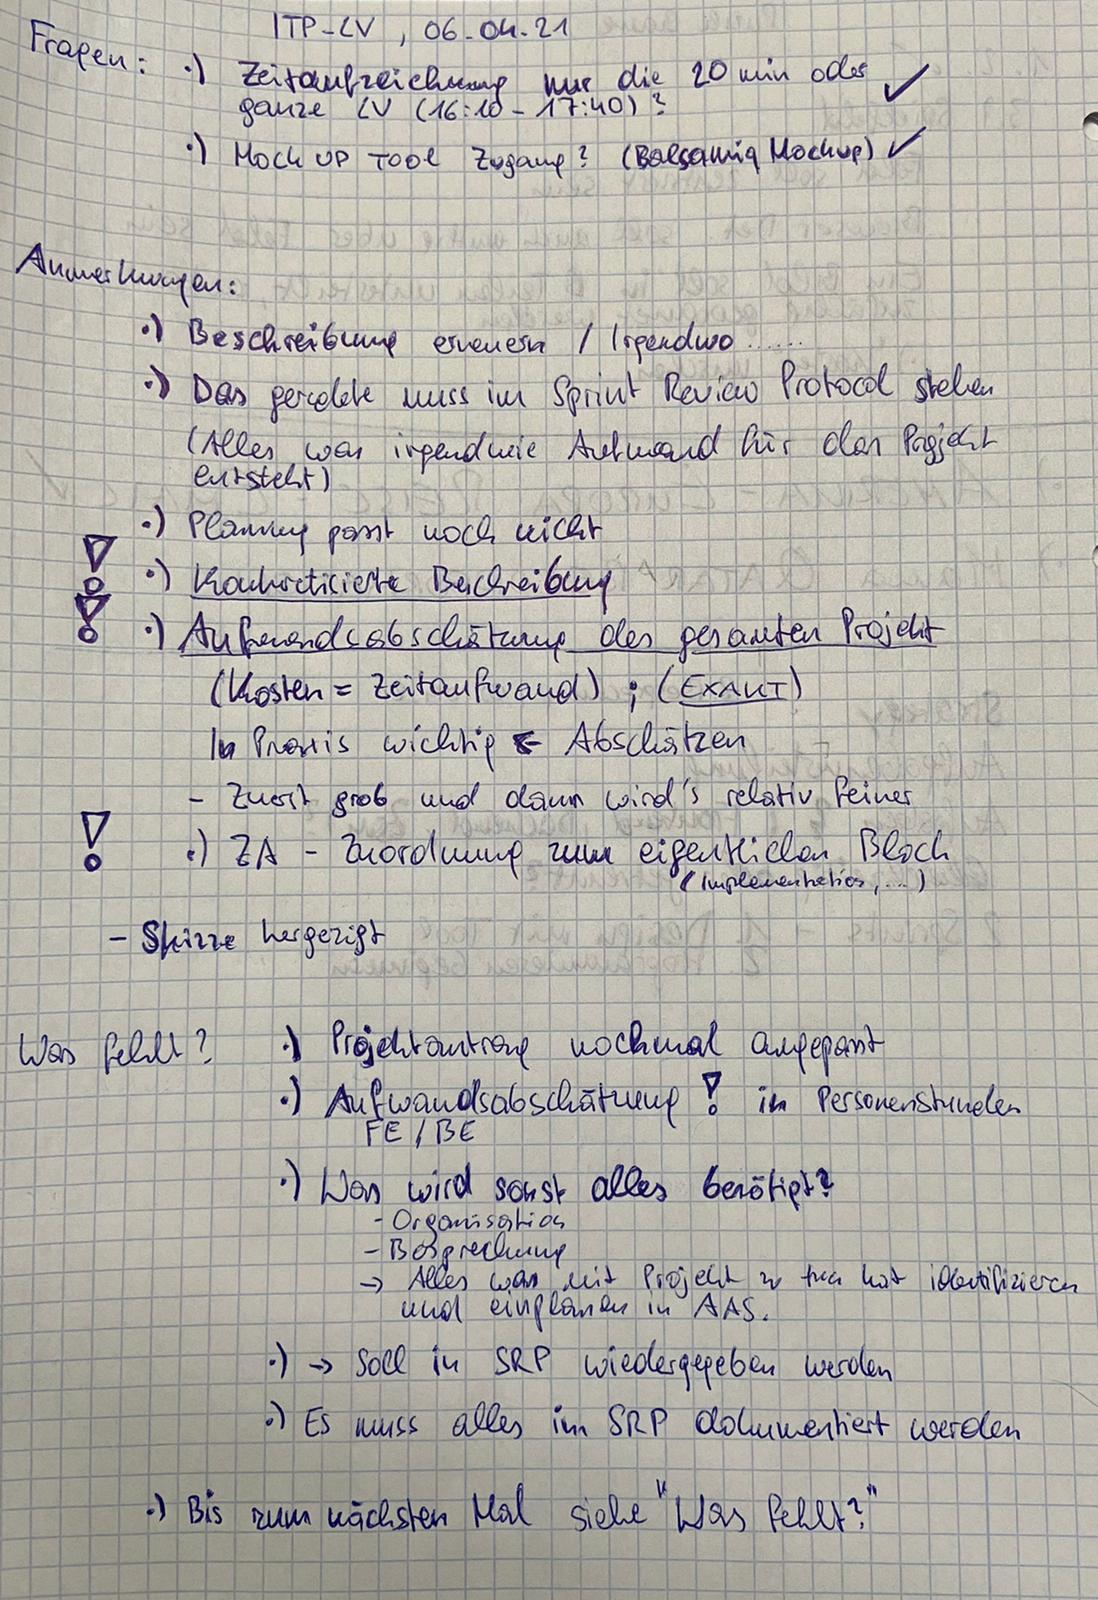 ITP-LV, 06.04.21
Fragen: •) Zeitaufzeichnung nur die 20 min oder ✓
ganze LV (16:10 - 17:40)?
•) Mock UP TOOL Zugang? (Balsamiq Mockup) ✓
Anmerkungen:
•) Beschreibung erneuern / Irgendwo ......
•) Das geredete muss im Sprint Review Protocol stehen
(Alles was irgendwie Aufwand für das Projekt
entsteht)
•) Planung passt noch nicht
•) Konkretisierte Beschreibung
•) Aufwandsabschätzung des gesamten Projekt
(Kosten = Zeitaufwand) ; (EXAKT)
In Praxis wichtig ← Abschätzen
- Zuerst grob und dann wird's relativ feiner
! •) ZA - Zuordnung zum eigentlichen Block
(Implementation, ...)
- Skizze hergezigt
Was fehlt? •) Projektantrag nochmal angepasst
•) Aufwandsabschätzung ! in Personenstunden
FE / BE
•) Was wird sonst alles benötigt?
- Organisation
- Besprechung
→ Alles was mit Projekt zu tun hat identifizieren
und einplanen in AAS.
•) → Soll in SRP wiedergegeben werden
•) Es muss alles im SRP dokumentiert werden
•) Bis zum nächsten Mal siehe "Was fehlt?"